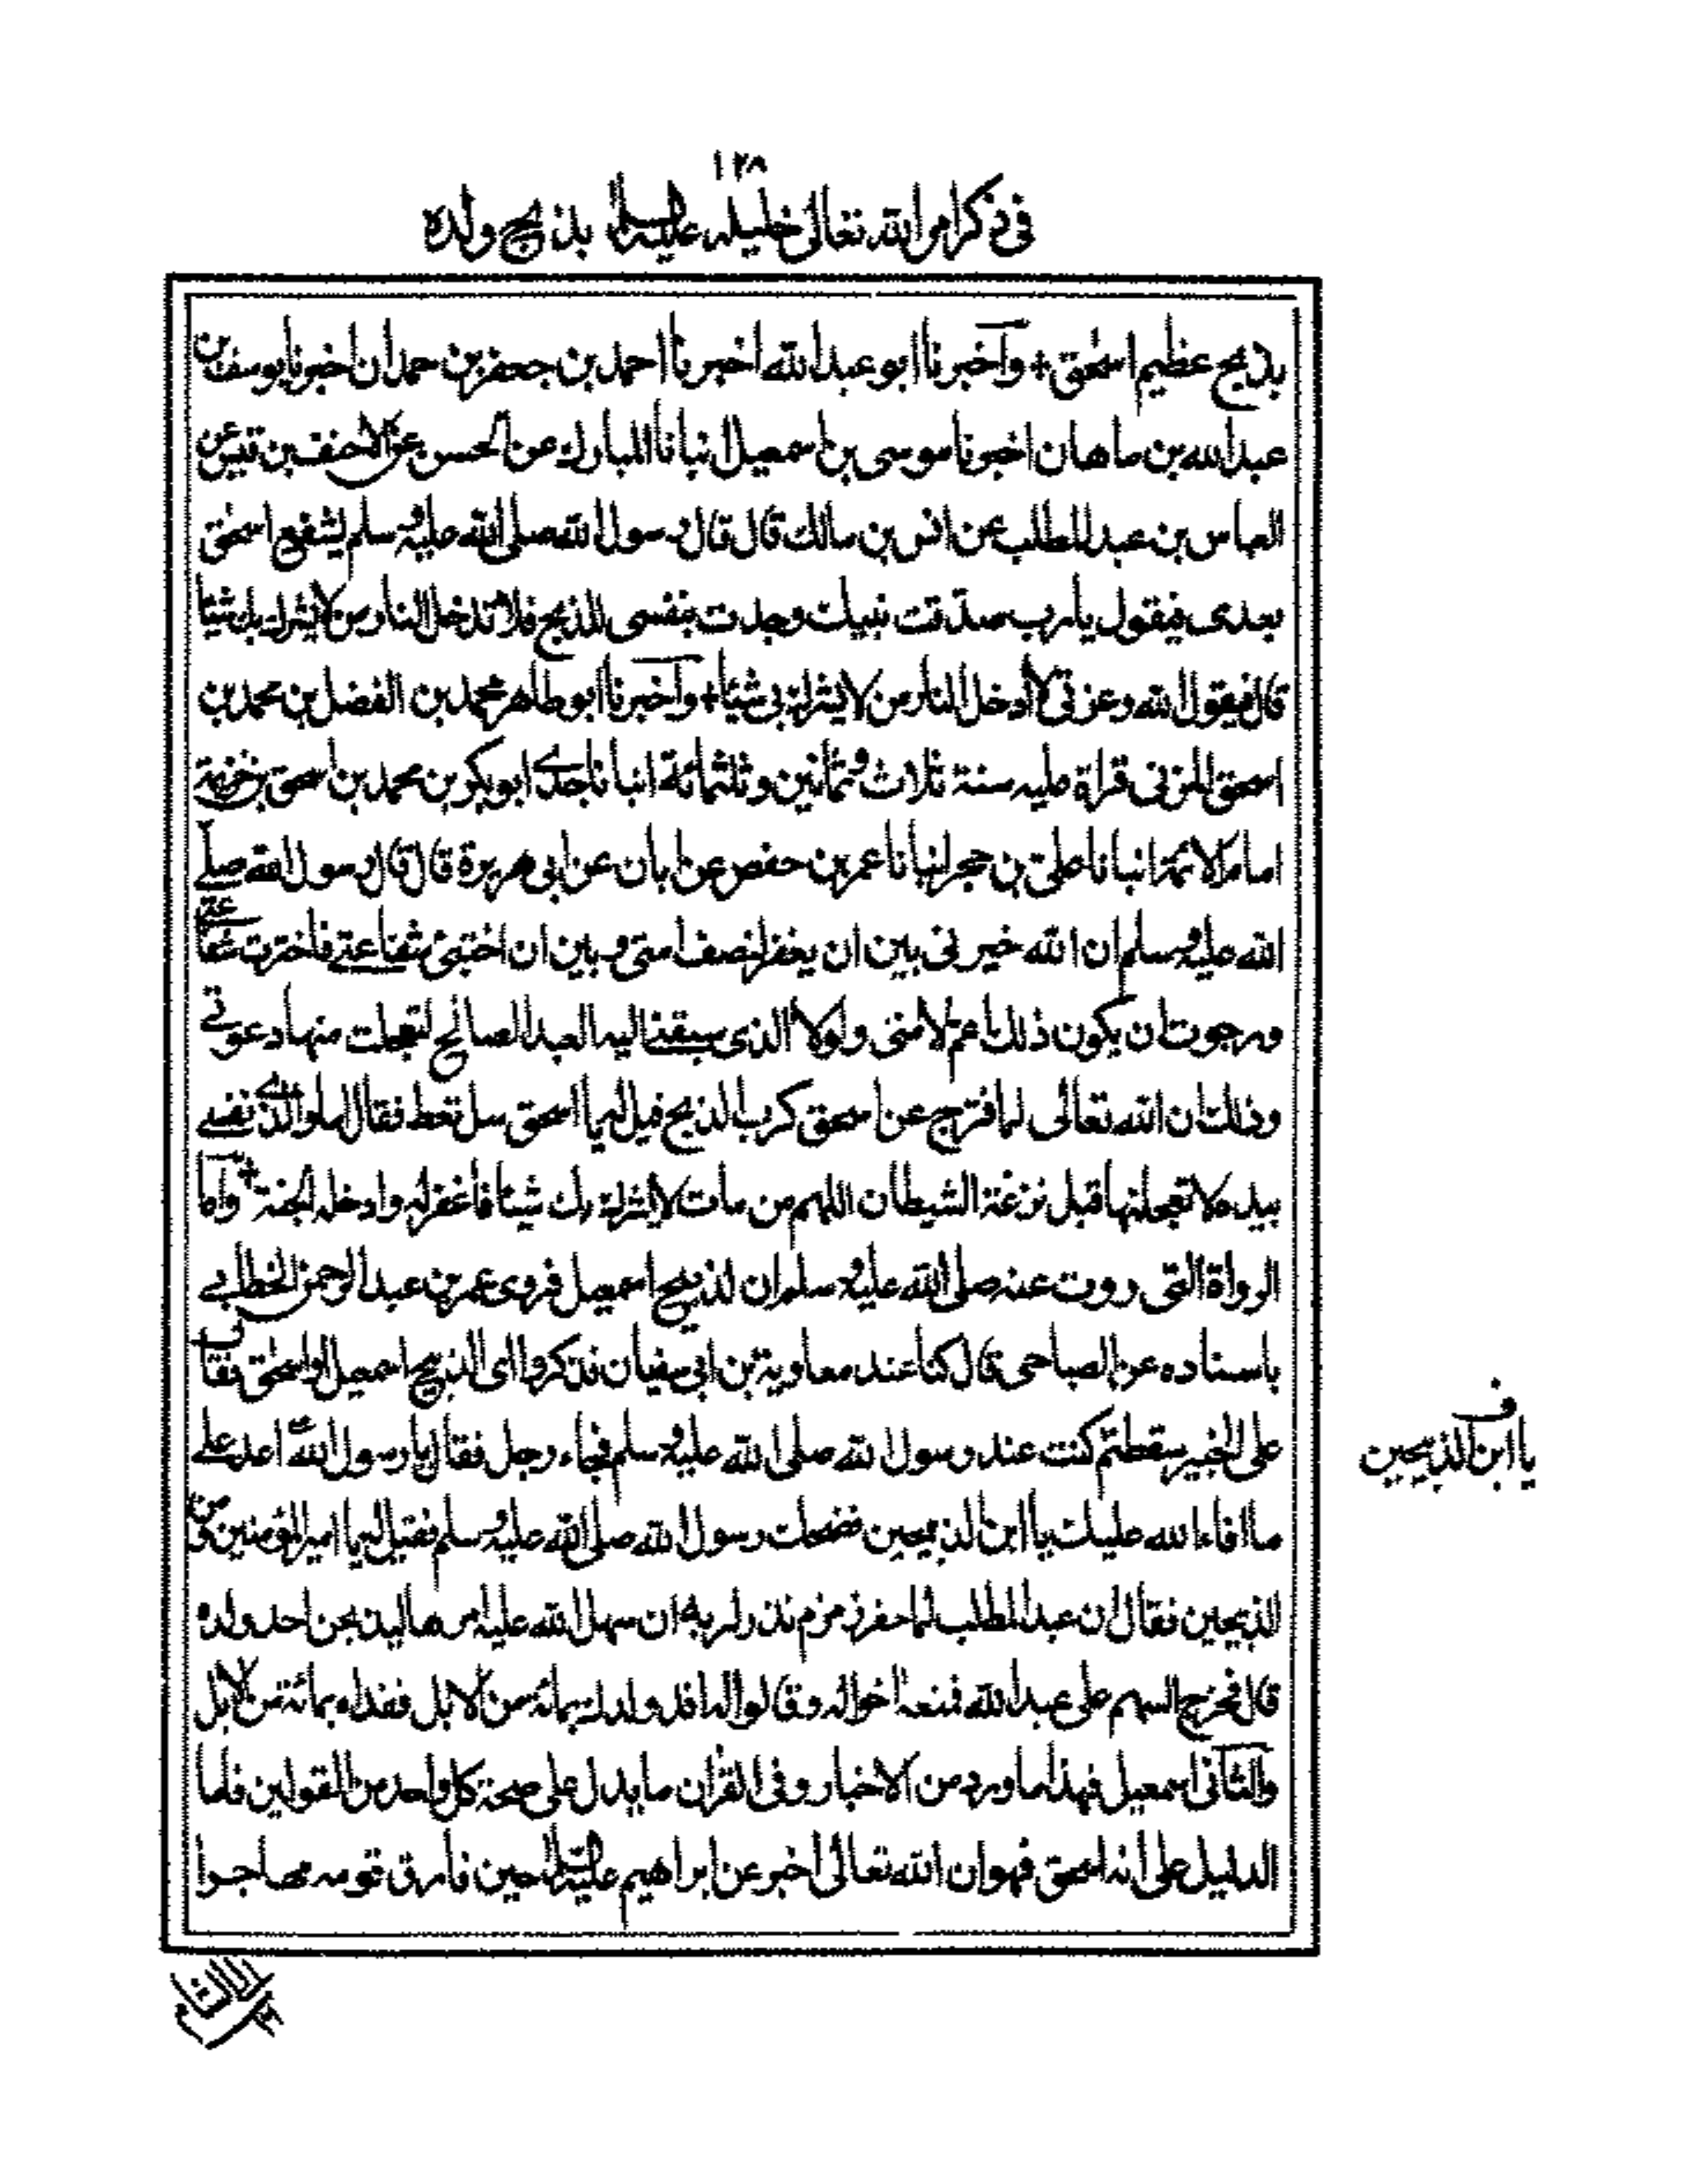 ١٢٨
فى ذكر امر الله تعالى خليله عليه السلام بذبح ولده
بذبح عظيم اسحٰق + وآخبرنا ابو عبد الله اخبرنا احمد بن جعفر بن حمدان اخبرنا يوسف بن
عبد الله بن ماهان اخبرنا موسى بن اسمعيل انبانا المبارك عن الحسن عن الاحنف بن قيس عن
العباس بن عبد المطلب عن انس بن مالك قال قال رسول الله صلى الله عليه وسلم يشفع اسحٰق
بعدى فيقول يا رب صدقت نبيك وجدت بنفسى للذبح فلا تدخل النار من لا يشرك بك شيئا
قال فيقول الله وعزتى لا ادخل النار من لا يشرك بى شيئا + وآخبرنا ابو طاهر محمد بن الفضل بن محمد بن
اسحٰق المزنى قراة عليه سنة ثلاث وثمانين وثلثمائة انبانا جدى ابو بكر بن محمد بن اسحٰق بن خزيمة
امام الائمة انبانا على بن حجر انبانا عمر بن حفص عن ابان عن ابى هريرة قال قال رسول الله صلى
الله عليه وسلم ان الله خيرنى بين ان يغفر لنصف امتى وبين ان اختبئ شفاعتى فاخترت شفاعتى
ورجوت ان يكون ذلك اعم لامتى ولولا الذى سبقنا اليه العبد الصالح لتعجلت منها دعوتى
وذلك ان الله تعالى لما فرج عن اسحٰق كرب الذبح قيل له يا اسحٰق سل تعط فقال اما والذى نفسى
بيده لا تعجلنها قبل نزغة الشيطان اللهم من مات لا يشرك بك شيئا فاغفر له وادخله الجنة + وآما
الرواة التى روت عنه صلى الله عليه وسلم ان الذبيح اسمعيل فروى عمر بن عبد الرحمن الخطابى
باسناده عن الصباحى قال كنا عند معاوية بن ابى سفيان فذكروا اى الذبيح اسمعيل او اسحٰق فقال
على الخبير سقطتم كنت عند رسول الله صلى الله عليه وسلم فجاءه رجل فقال يا رسول الله اعد على
ف
يا ابن الذبيحين
ما افاء الله عليك يا ابن الذبيحين فضحك رسول الله صلى الله عليه وسلم فقيل له يا امير المؤمنين من
الذبيحين فقال ان عبد المطلب لما حفر زمزم نذر لربه ان سهل الله عليه امرها ليذبحن احد ولده
قال فخرج السهم على عبد الله فمنعه اخواله وقالوا له افد ولدك بمائة من الابل ففداه بمائة من الابل
والثانى اسمعيل فهذا ما ورد من الاخبار وفى القرآن ما يدل على صحة كل واحد من القولين فاما
الدليل على انه اسحٰق فهو ان الله تعالى اخبر عن ابراهيم عليه السلام حين فارق قومه مهاجرا